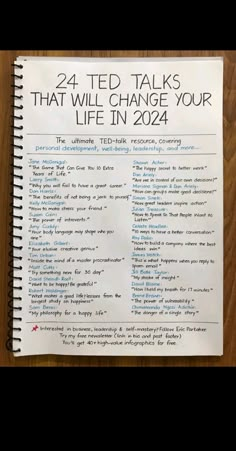 24 TED TALKS
THAT WILL CHANGE YOUR
LIFE IN 2024
The ultimate TED-talk resource, covering
personal development, well-being, leadership, and more...
Jane McGonigal:
"The Game That Can Give You 10 Extra
Years of Life."
Larry Smith:
"Why you will fail to have a great career."
Dan Harris:
"The benefits of not being a jerk to yourself"
Kelly McGonigal:
"How to make stress your friend."
Susan Cain:
"The power of introverts."
Amy Cuddy:
"Your body language may shape who you
are"
Elizabeth Gilbert:
"Your elusive creative genius"
Tim Urban:
"Inside the mind of a master procrastinator"
Matt Cutts:
"Try something new for 30 days"
David Steindl-Rast:
"Want to be happy? Be grateful"
Robert Waldinger:
"What makes a good life? Lessons from the
longest study on happiness"
Sam Berns:
"My philosophy for a happy life"
Shawn Achor:
"The happy secret to better work"
Dan Ariely:
"Are we in control of our own decisions?"
Mariano Sigman & Dan Ariely:
"How can groups make good decisions?"
Simon Sinek:
"How great leaders inspire action"
Julian Treasure:
"How to Speak So That People Want to
Listen"
Celeste Headlee:
"10 ways to have a better conversation"
Ray Dalio:
"How to build a company where the best
ideas win"
James Veitch:
"This is what happens when you reply to
spam email"
Jill Bolte Taylor:
"My stroke of insight"
David Blaine:
"How I held my breath for 17 minutes"
Brené Brown:
"The power of vulnerability"
Chimamanda Ngozi Adichie:
"The danger of a single story"
Interested in business, leadership & self-mastery? Follow Eric Partaker
Try my free newsletter (link in bio and post footer)
You'll get 40+ high-value infographics for free.